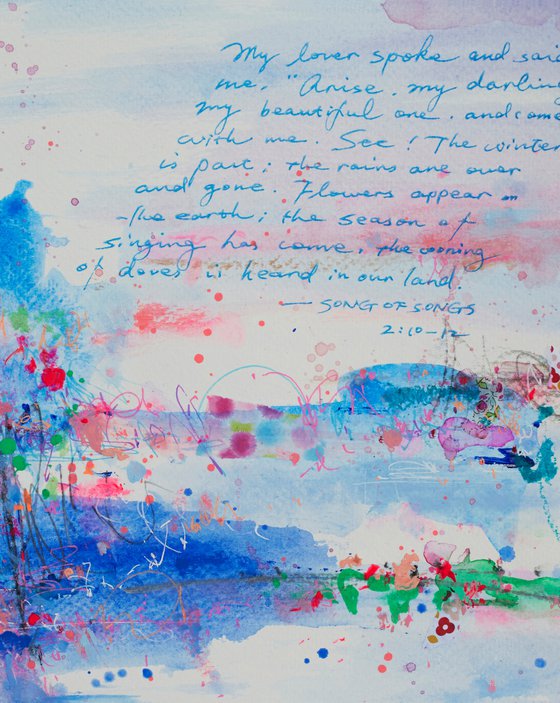 My lover spoke and said
me, "Arise, my darlin
my beautiful one, and come
with me. See! The winter
is past; the rains are over
and gone. Flowers appear on
the earth; the season of
singing has come, the cooing
of doves is heard in our land.
— SONG OF SONGS
2:10-12